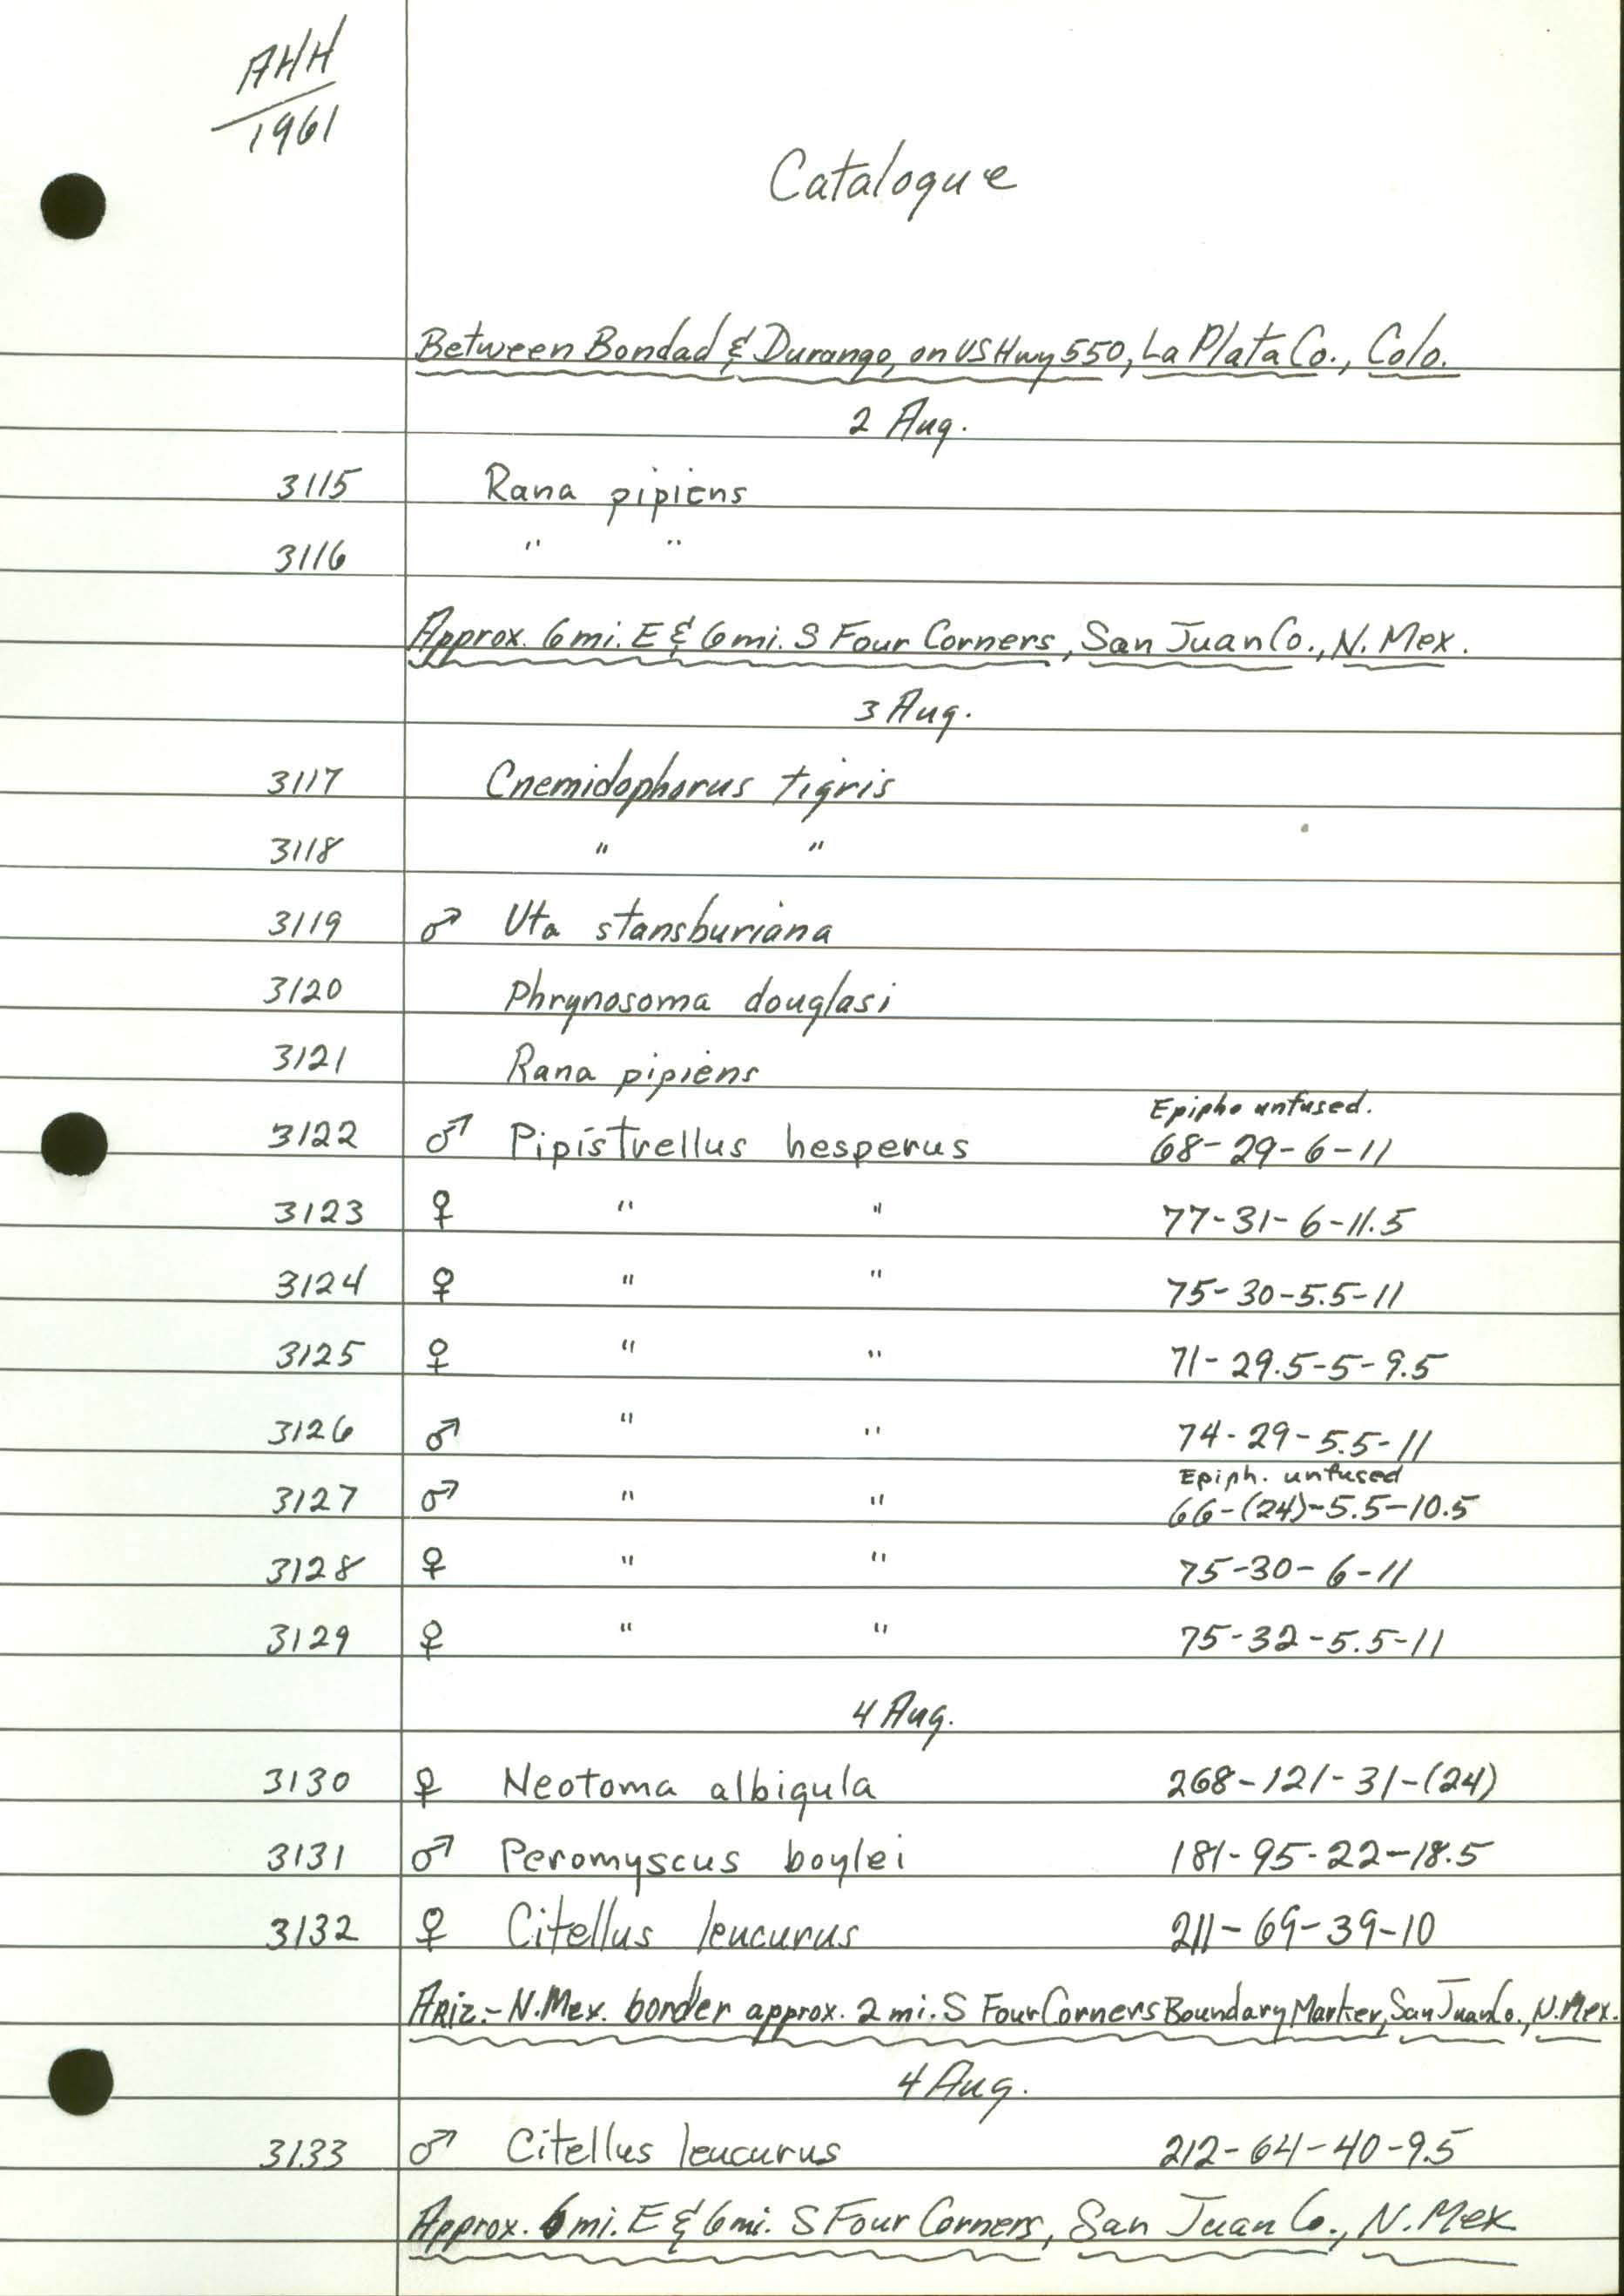 AHH
1961
Catalogue
Between Bondad & Durango, on US Hwy 550, La Plata Co., Colo.
2 Aug.
3115 Rana pipiens
3116 " "
Approx. 6 mi. E & 6 mi. S Four Corners, San Juan Co., N. Mex.
3 Aug.
3117 Cnemidophorus tigris
3118 " "
3119 ♂ Uta stansburiana
3120 Phrynosoma douglasi
3121 Rana pipiens
Epiph. unfused.
3122 ♂ Pipistrellus hesperus 68-29-6-11
3123 ♀ " " 77-31-6-11.5
3124 ♀ " " 75-30-5.5-11
3125 ♀ " " 71-29.5-5-9.5
3126 ♂ " " 74-29-5.5-11
Epiph. unfused
3127 ♂ " " 66-(24)-5.5-10.5
3128 ♀ " " 75-30-6-11
3129 ♀ " " 75-32-5.5-11
4 Aug.
3130 ♀ Neotoma albigula 268-121-31-(24)
3131 ♂ Peromyscus boylei 181-95-22-18.5
3132 ♀ Citellus leucurus 211-69-39-10
Ariz.-N.Mex. border approx. 2 mi. S Four Corners Boundary Marker, San Juan Co., N.Mex.
4 Aug.
3133 ♂ Citellus leucurus 212-64-40-9.5
Approx. 6 mi. E & 6 mi. S Four Corners, San Juan Co., N. Mex